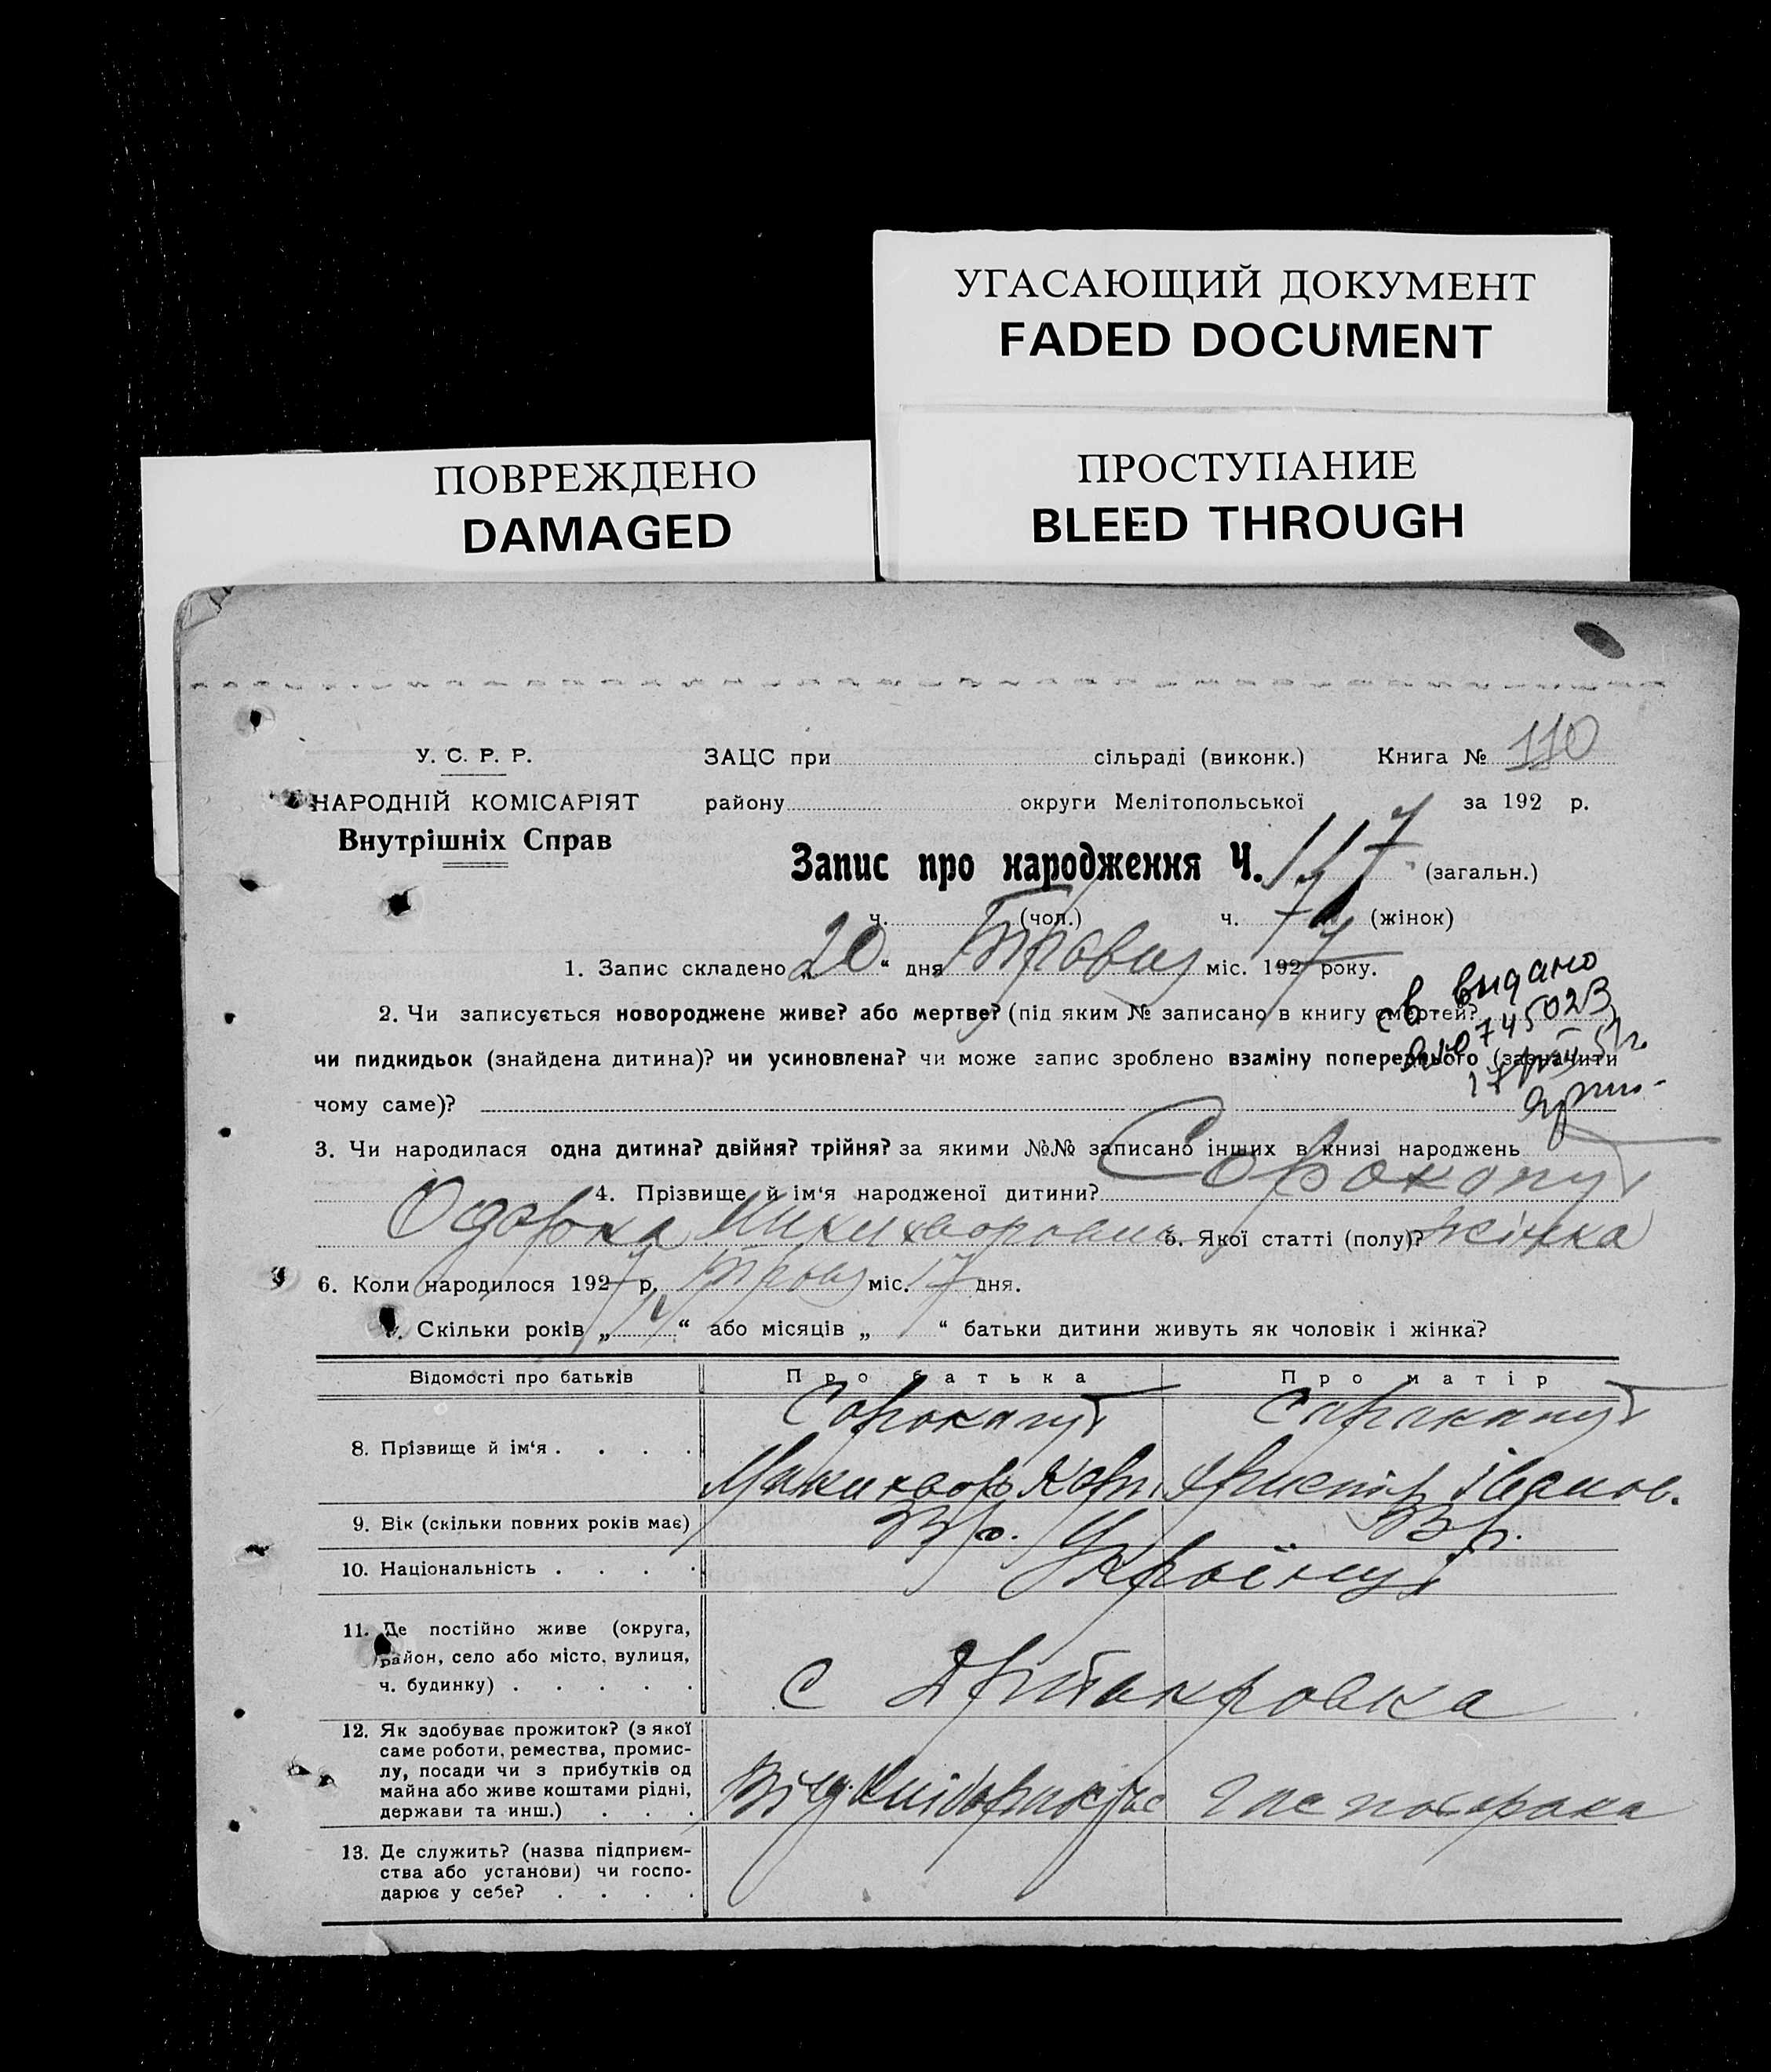 УГАСАЮЩИЙ ДОКУМЕНТ
FADED DOCUMENT
ПОВРЕЖДЕНО
DAMAGED
ПРОСТУПАНИЕ
BLEED THROUGH
У. С. Р. Р.
НАРОДНІЙ КОМІСАРІЯТ
Внутрішніх Справ
ЗАЦС при сільраді (виконк.) Книга № 110
району округи Мелітопольської за 192 р.
Запис про народження Ч. 117 (загальн.)
ч. (чол.) ч. (жінок)
1. Запис складено „20“ дня Травня міс. 1927 року.
2. Чи записується новороджене живе? або мертве? (під яким № записано в книгу смертей?
св выдано
чи пидкидьок (знайдена дитина)? чи усиновлена? чи може запис зроблено взаміну попереднього (зазначити
чому саме)?
3. Чи народилася одна дитина? двійня? трійня? за якими №№ записано інших в книзі народжень
4. Прізвище й ім‘я народженої дитини? Сорокопуд
Одарка 5. Якої статті (полу)? жінка
6. Коли народилося 1927 р. Травн міс. 17 дня.
7. Скільки років „14“ або місяців „ “ батьки дитини живуть як чоловік і жінка?
Відомості про батьків Про батька Про матір
8. Прізвище й ім‘я . . . .
Іванов.
9. Вік (скільки повних років має) 33 р. 33 р.
10. Національність . . . . Українці
11. Де постійно живе (округа,
район, село або місто, вулиця,
ч. будинку) . . . . .
с
12. Як здобуває прожиток? (з якої
саме роботи, ремества, промис-
лу, посади чи з прибутків од
майна або живе коштами рідні,
держави та инш.) . . . .
13. Де служить? (назва підприєм-
ства або установи) чи госпо-
дарює у себе? . . . .